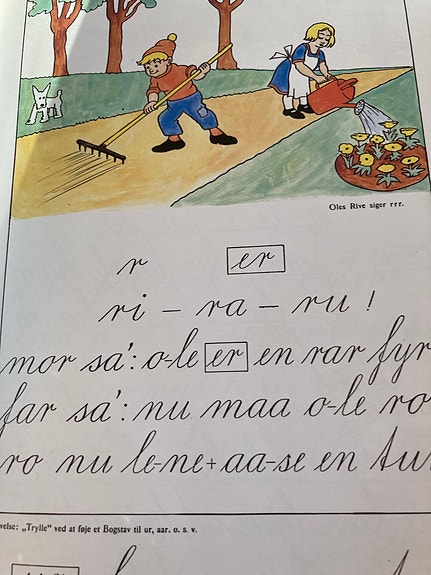 Oles Rive siger rrr.
r er
ri – ra – ru !
mor sa': o-le er en rar fyr
far sa': nu maa o-le ro
ro nu le-ne + aa-se en tur
velse: „Trylle" ved at føje et Bogstav til ur, aar. o. s. v.